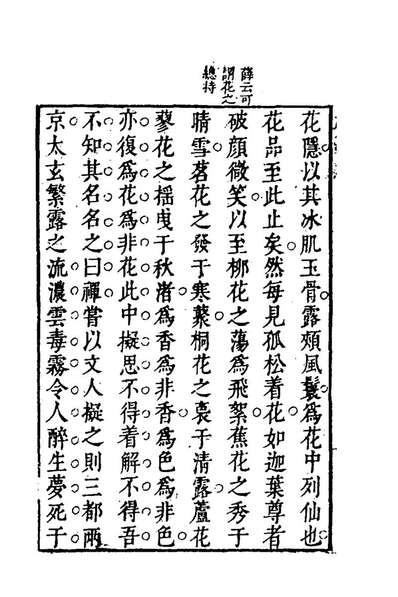 薛云可
謂花之
總持
花隱以其冰肌玉骨露頰風鬟爲花中列仙也
花品至此止矣然每見孤松着花如迦葉尊者
破顔微笑以至柳花之蕩爲飛絮蕉花之秀于
晴雪茗花之發于寒蘂桐花之裛于清露蘆花
蓼花之揺曳于秋渚爲香爲非香爲色爲非色
亦復爲花爲非花此中擬思不得着解不得吾
不知其名名之曰禪嘗以文人擬之則三都兩
京太玄繁露之流濃雲毒霧令人醉生夢死于